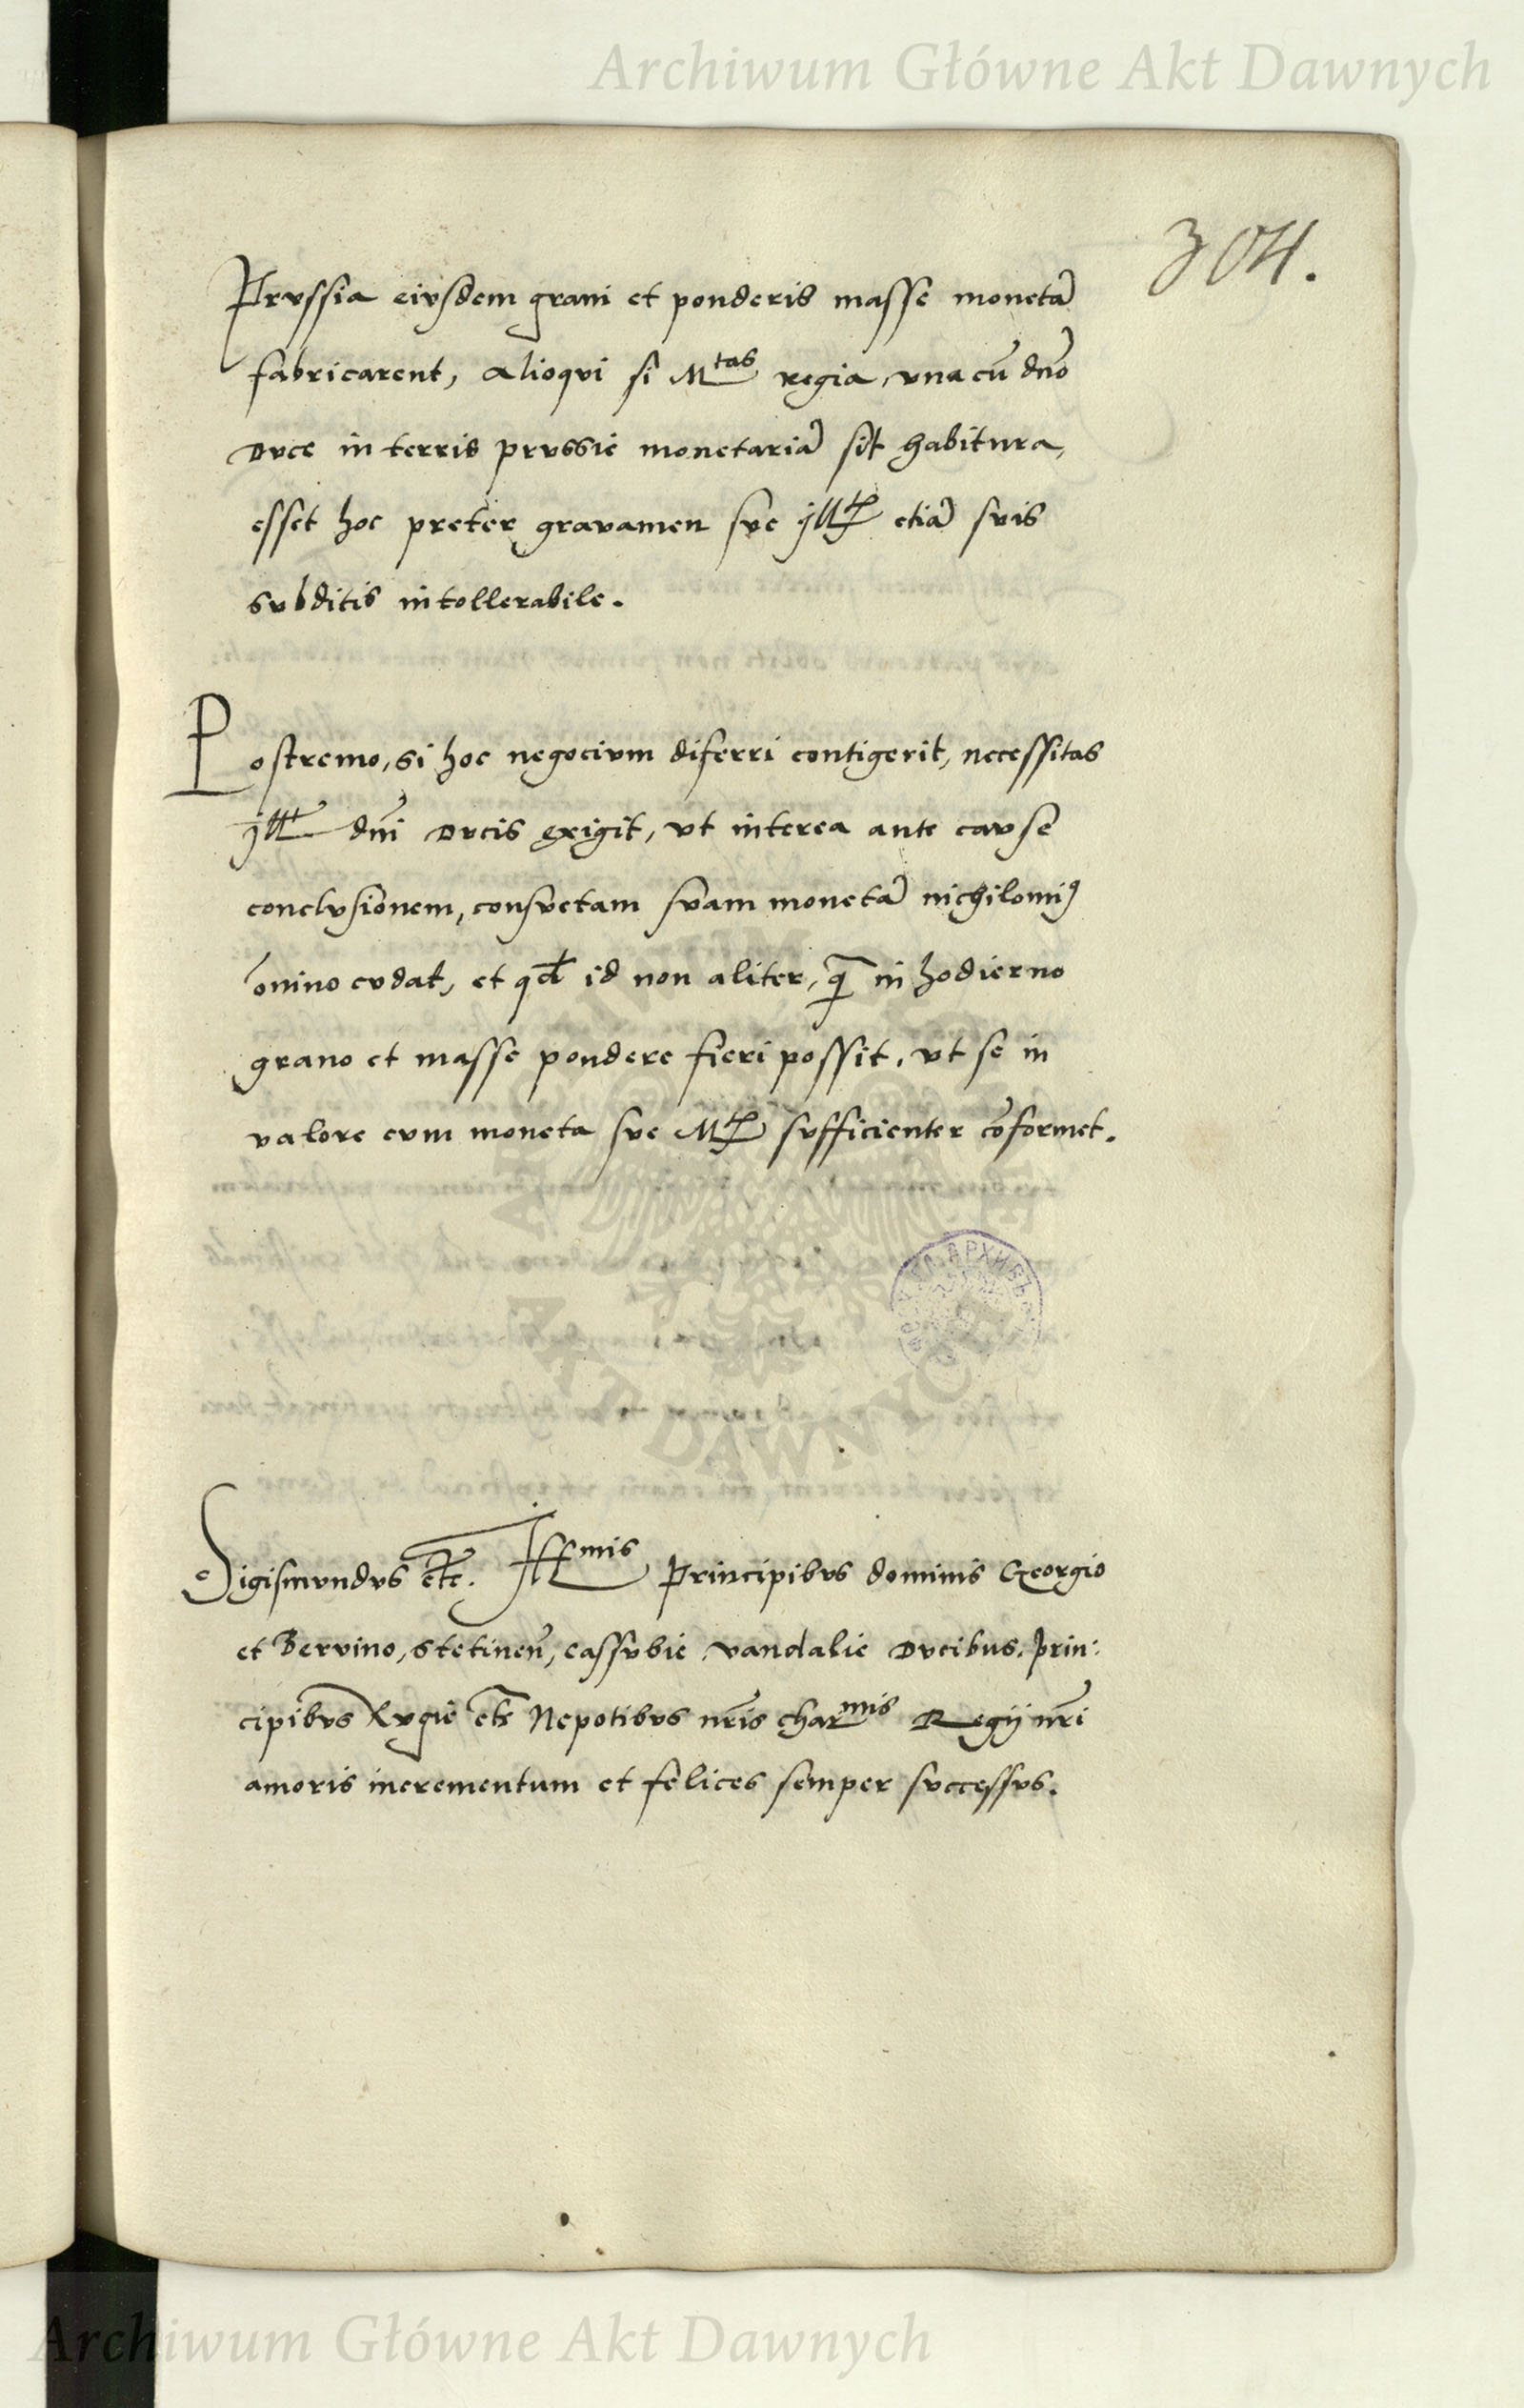 Archiwum Główne Akt Dawnych
304.
Prussia eiusdem grani et ponderis masse monetā
fabricarent, alioqui si Mtas regia, una cū dno
Duce in terris prussie monetariā sit habitura,
esset hoc preter gravamen sue Illtis etiā suis
subditis intollerabile.
Postremo, si hoc negocium diferri contigerit, necessitas
Illt dni Ducis exigit, ut interea ante cause
conclusionem, consuetam suam monetā nichilomi9
omnino cudat, et qd id non aliter, q̄ in hodierno
grano et masse pondere fieri possit, ut se in
valore cum moneta sue Mtis sufficienter cōformet.
Sigismundus etc. Illmis Principibus dominis Georgio
et Bervino, stetinen, cassubie vandalie Ducibus, prin:
cipibus Rugie etc Nepotibus nris charmis Regij nri
amoris incrementum et felices semper successus.
AKT DAWNYCH
Archiwum Główne Akt Dawnych